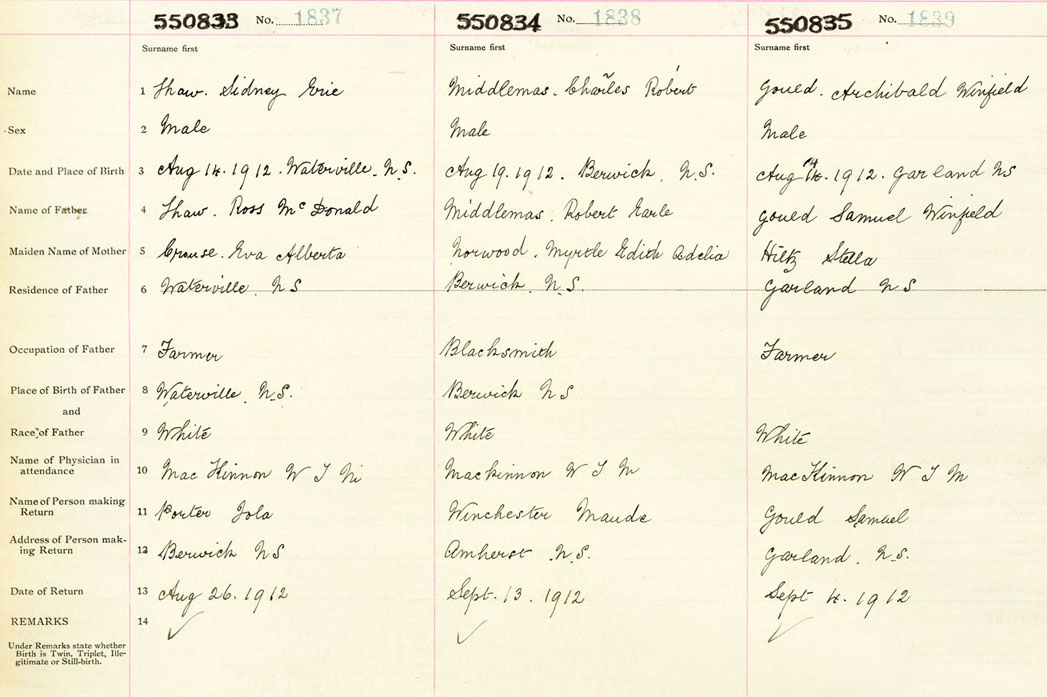 550833 No. 1837 550834 No. 1838 550835 No. 1839
Surname first Surname first Surname first
Name 1 Shaw. Sidney Eric Middlemas. Charles Robert Gould. Archibald Winfield
Sex 2 Male Male Male
Date and Place of Birth 3 Aug 14. 1912. Waterville. N.S. Aug 19. 1912. Berwick. N.S. Aug 14. 1912. Garland NS
Name of Father 4 Shaw. Ross McDonald Middlemas. Robert Earle Gould Samuel Winfield
Maiden Name of Mother 5 Crouse. Eva Alberta Norwood. Myrtle Edith Adelia Hiltz Stella
Residence of Father 6 Waterville. N S Berwick. N.S. Garland N S
Occupation of Father 7 Farmer Blacksmith Farmer
Place of Birth of Father 8 Waterville. N.S. Berwick N S
and
Race of Father 9 White White White
Name of Physician in
attendance 10 MacKinnon W J M Mackinnon W J M MacKinnon W J M
Name of Person making
Return 11 Porter Iola Winchester Maude Gould Samuel
Address of Person mak-
ing Return 12 Berwick NS Amherst N.S. Garland. N.S.
Date of Return 13 Aug 26. 1912 Sept. 13. 1912 Sept 4. 1912
REMARKS 14
Under Remarks state whether
Birth is Twin, Triplet, Ille-
gitimate or Still-birth.